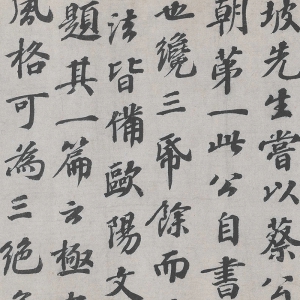 坡先生嘗以蔡公
朝第一此公自書
也纔三帋餘而
法皆備歐陽文
題其一篇云極
風格可為三絕